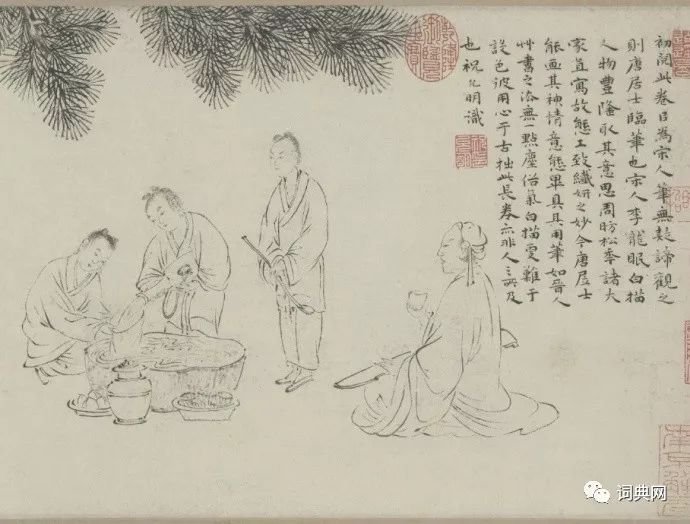 初閱此卷目為宋人筆無疑諦觀之
則唐居士臨筆也宋人李龍眠白描
人物豐隆取其意思周昉松年諸大
家直寫故態工致纖妍之妙今唐居士
能画其神情意態畢具其用筆如晉人
艸書之法無一點塵俗氣白描更難于
設色彼用心于古拙此長卷亦非人之所及
也祝允明識
词典网